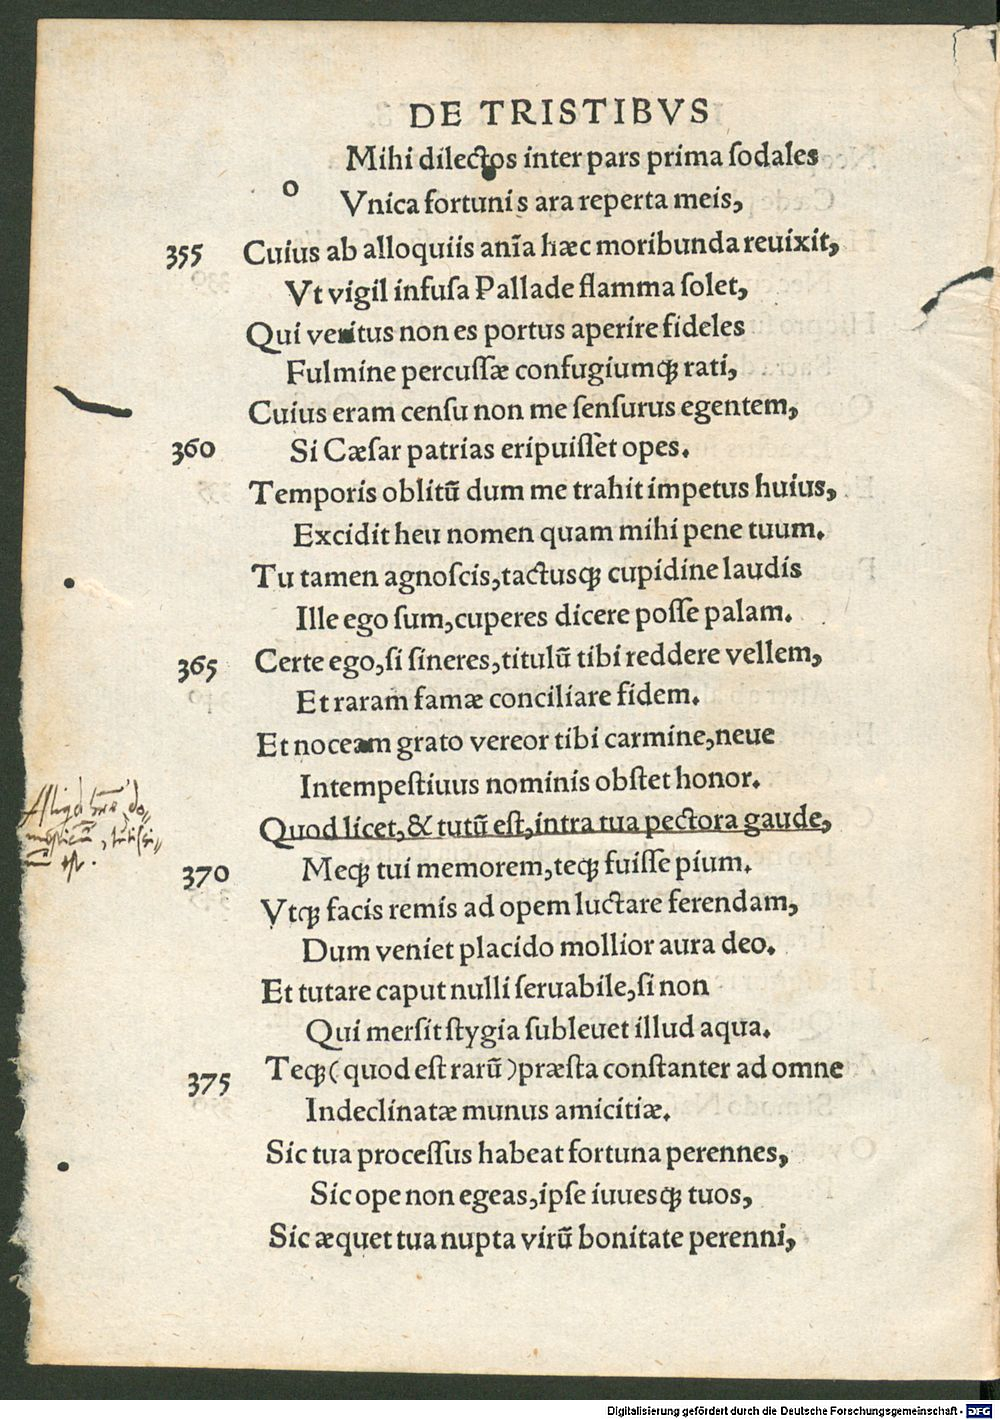 DE TRISTIBVS
Mihi dilectos inter pars prima ſodales
o
Vnica fortunis ara reperta meis,
355 Cuius ab alloquiis anĩa hæc moribunda reuixit,
Vt vigil infuſa Pallade flamma ſolet,
Qui veritus non es portus aperire fideles
Fulmine percuſſæ confugiumqꝫ rati,
Cuius eram cenſu non me ſenſurus egentem,
360 Si Cæſar patrias eripuiſſet opes.
Temporis oblitũ dum me trahit impetus huius,
Excidit heu nomen quam mihi pene tuum.
Tu tamen agnoſcis,tactusqꝫ cupidine laudis
Ille ego ſum,cuperes dicere poſſe palam.
365 Certe ego,ſi ſineres,titulũ tibi reddere vellem,
Et raram famæ conciliare fidem.
Et noceam grato vereor tibi carmine,neue
Intempeſtiuus nominis obſtet honor.
Quod licet,& tutũ eſt,intra tua pectora gaude,
370 Meqꝫ tui memorem,teqꝫ fuiſſe pium.
Vtqꝫ facis remis ad opem luctare ferendam,
Dum veniet placido mollior aura deo.
Et tutare caput nulli ſeruabile,ſi non
Qui merſit ſtygia ſubleuet illud aqua.
375 Teqꝫ (quod eſt rarũ) præſta conſtanter ad omne
Indeclinatæ munus amicitiæ.
Sic tua proceſſus habeat fortuna perennes,
Sic ope non egeas,ipſe iuuesqꝫ tuos,
Sic æquet tua nupta virũ bonitate perenni,
Digitalisierung gefördert durch die Deutsche Forschungsgemeinschaft - DFG